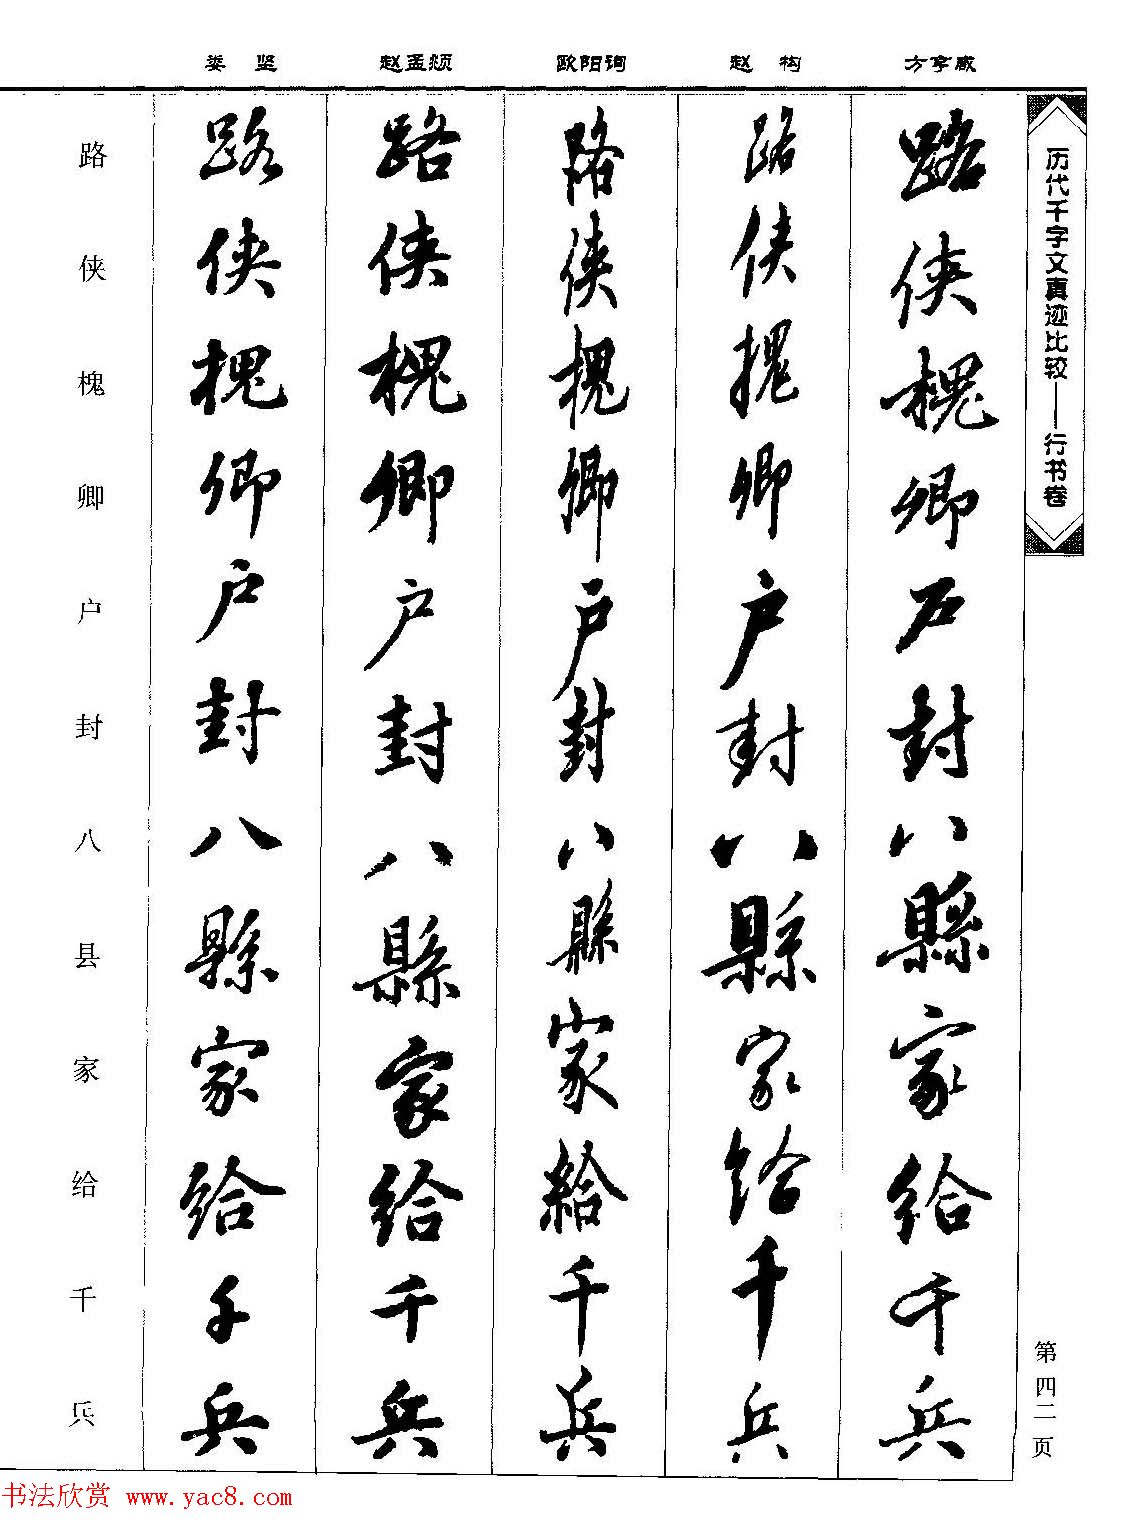 娄坚 赵孟頫 欧阳询 赵构 方亨咸
历代千字文真迹比较——行书卷
路侠槐卿户封八縣家給千兵
路侠槐卿户封八縣家給千兵
路侠槐卿户封八縣家給千兵
路侠槐卿户封八縣家給千兵
路侠槐卿户封八縣家給千兵
路侠槐卿户封八县家给千兵
第四二页
书法欣赏 www.yac8.com